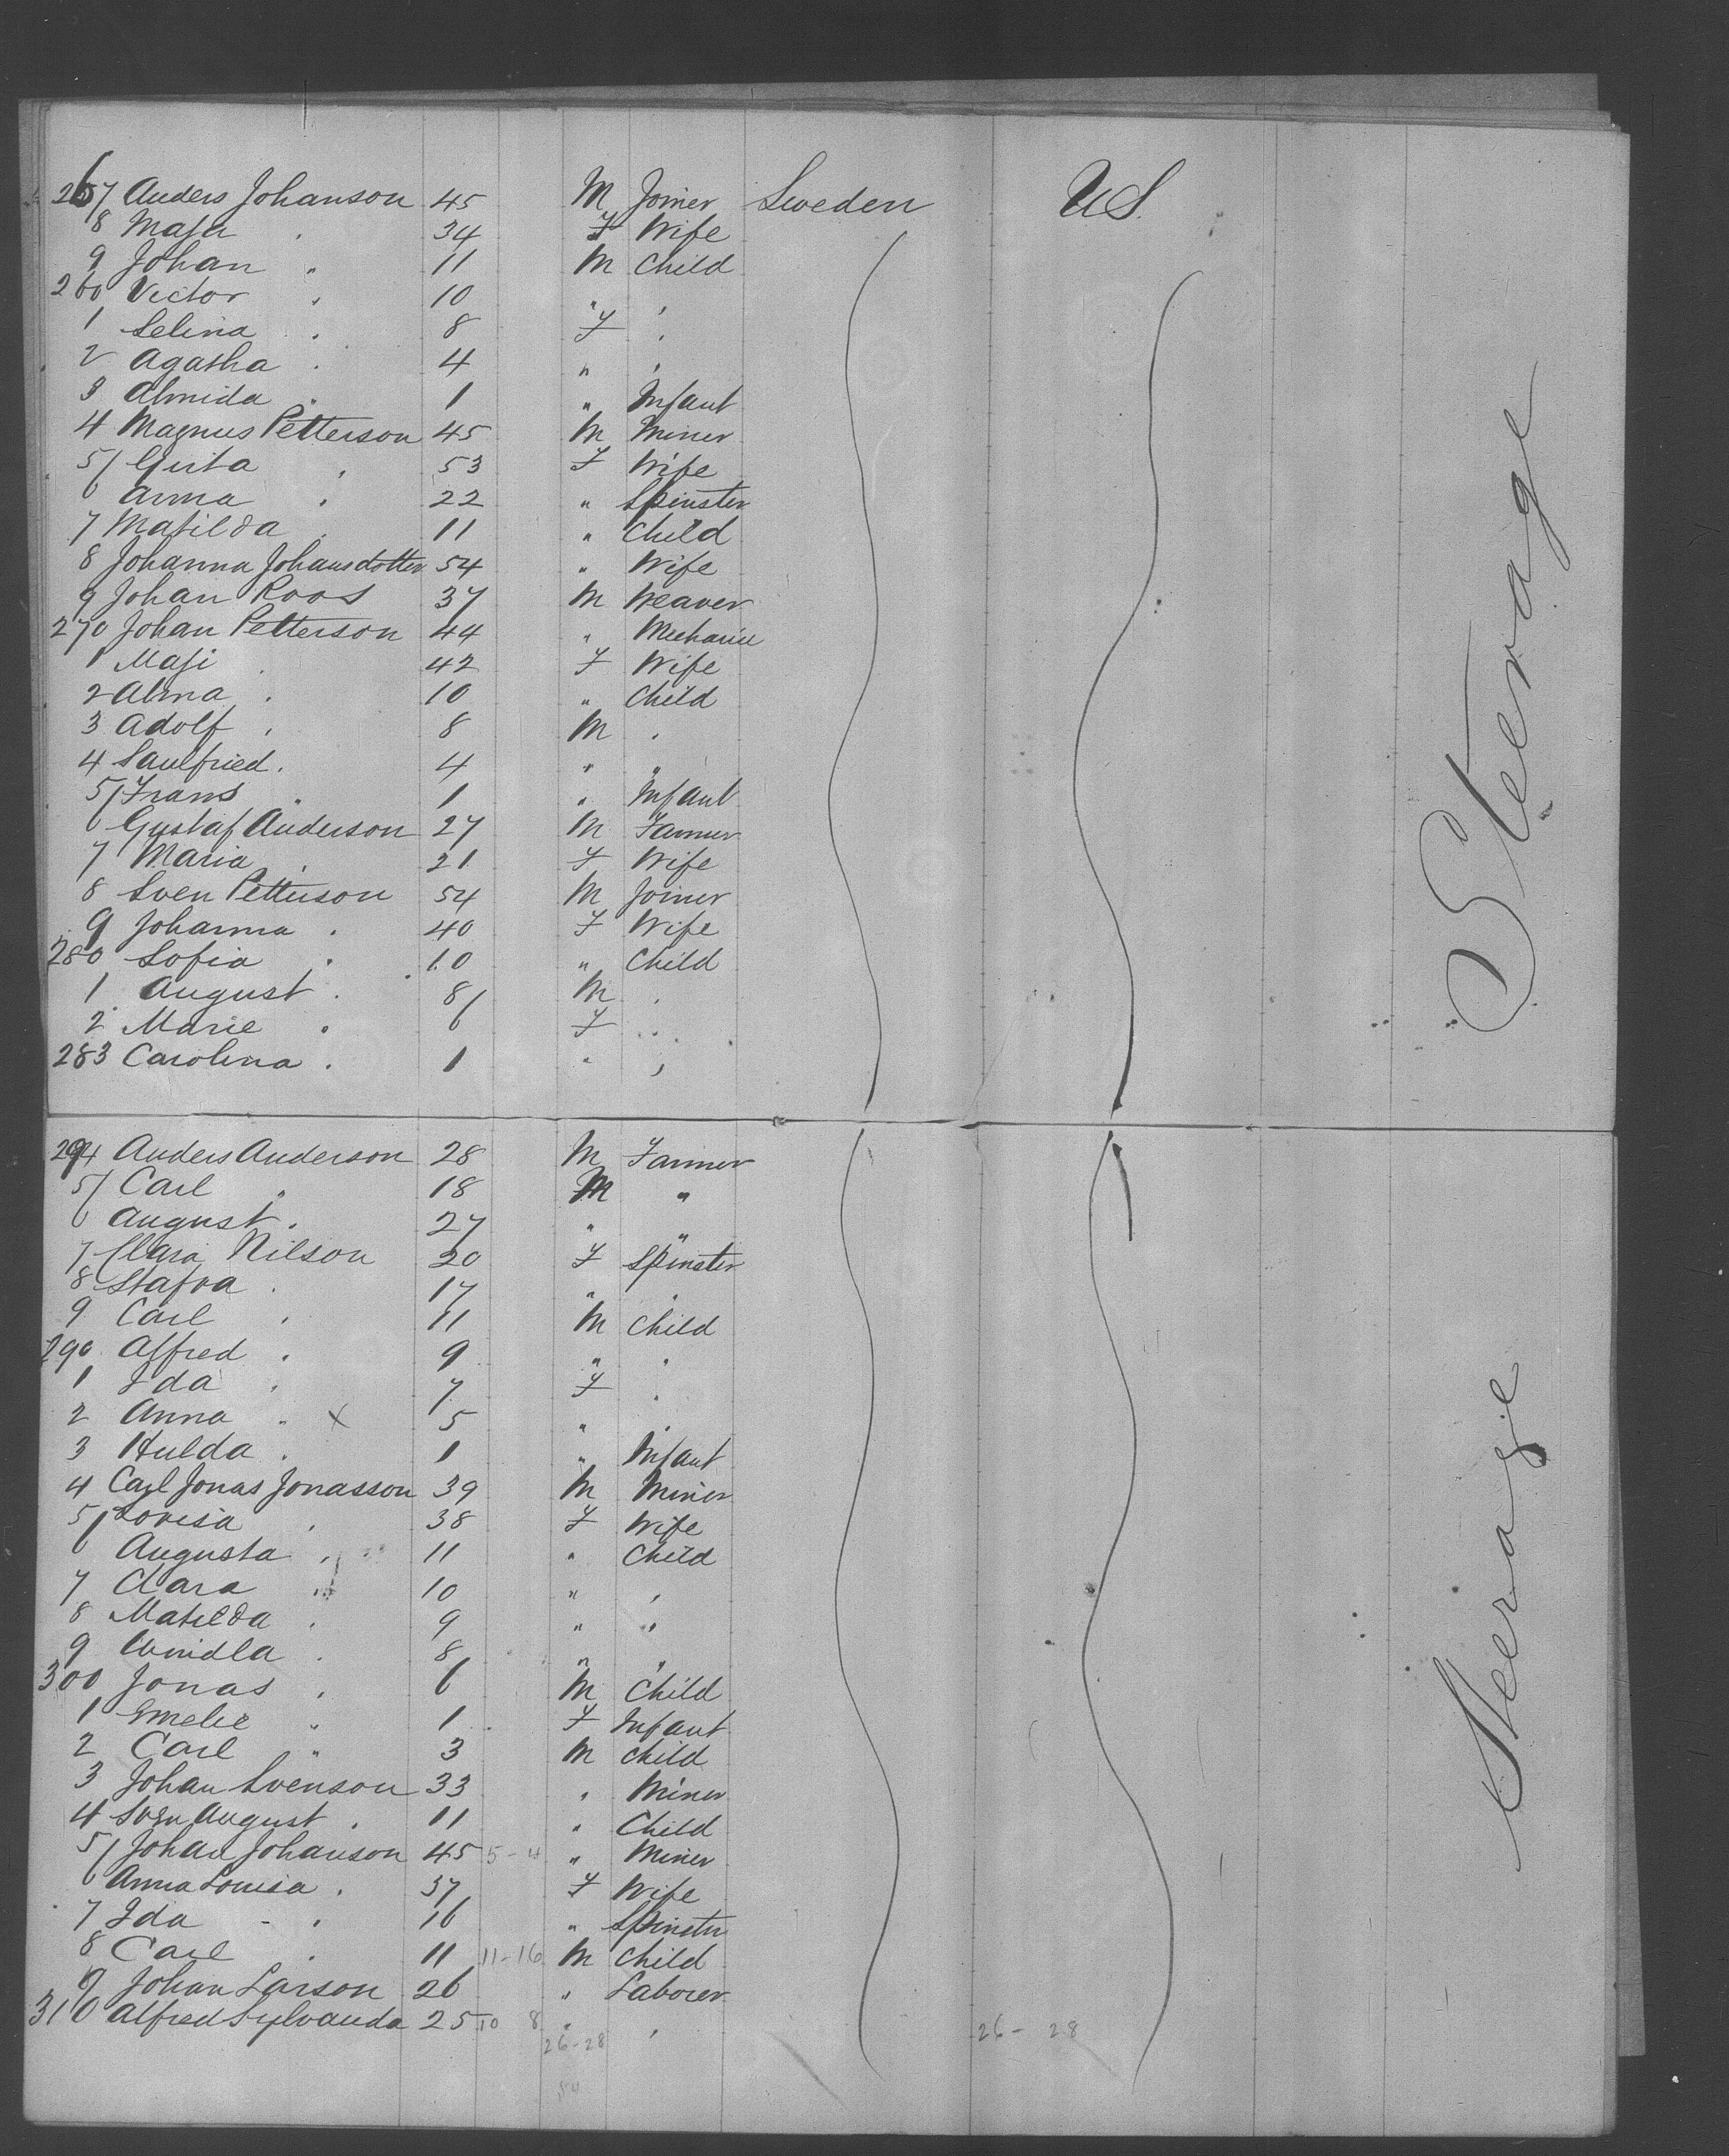 6
257 Anders Johanson 45 M Joiner Sweden U.S.
8 Maja " 34 F Wife
9 Johan " 11 M Child
260 Victor " 10 " "
1 Selina " 8 F "
2 Agatha " 4 " "
3 Almida " 1 " Infant
4 Magnus Petterson 45 M Miner
5 Greta " 53 F Wife
6 Anna " 22 " Spinster
7 Matilda " 11 " Child
8 Johanna Johansdotter 54 " Wife
9 Johan Roos 37 M Weaver
270 Johan Petterson 44 " Mechanic
1 Maji " 42 F Wife
2 Alma " 10 " Child
3 Adolf " 8 M "
4 Saulfried " 4 " "
5 Frans " 1 " Infant
6 Gustaf Anderson 27 M Farmer
7 Maria " 21 F Wife
8 Sven Petterson 54 M Joiner
9 Johanna " 40 F Wife
280 Sofia " 10 " Child
1 August " 8 M "
2 Marie " 6 F "
283 Carolina " 1 " "
Steerage
294 Anders Anderson 28 M Farmer
5 Carl " 18 M "
6 August " 27 " "
7 Clara Nilson 20 F Spinster
8 Stafva " 17 " "
9 Carl " 11 M Child
290 Alfred " 9 " "
1 Ida " 7 F "
2 Anna " x 5 " "
3 Hulda " 1 " Infant
4 Carl Jonas Jonasson 39 M Miner
5 Lovisa " 38 F Wife
6 Augusta " 11 " Child
7 Clara " 10 " "
8 Matilda " 9 " "
9 " 8 " "
300 Jonas " 6 M Child
1 Emelie " 1 F Infant
2 Carl " 3 M Child
3 Johan Svenson 33 " Miner
4 Sven August " 11 " Child
5 Johan Johanson 45 5-4 " Miner
6 Anna Louisa " 37 F Wife
7 Ida " 16 " Spinster
8 Carl " 11 11-16 M Child
9 Johan Larson 26 " Laborer
310 Alfred Sylvanda 25 10 8 " "
26-28 26-28
54
Steerage